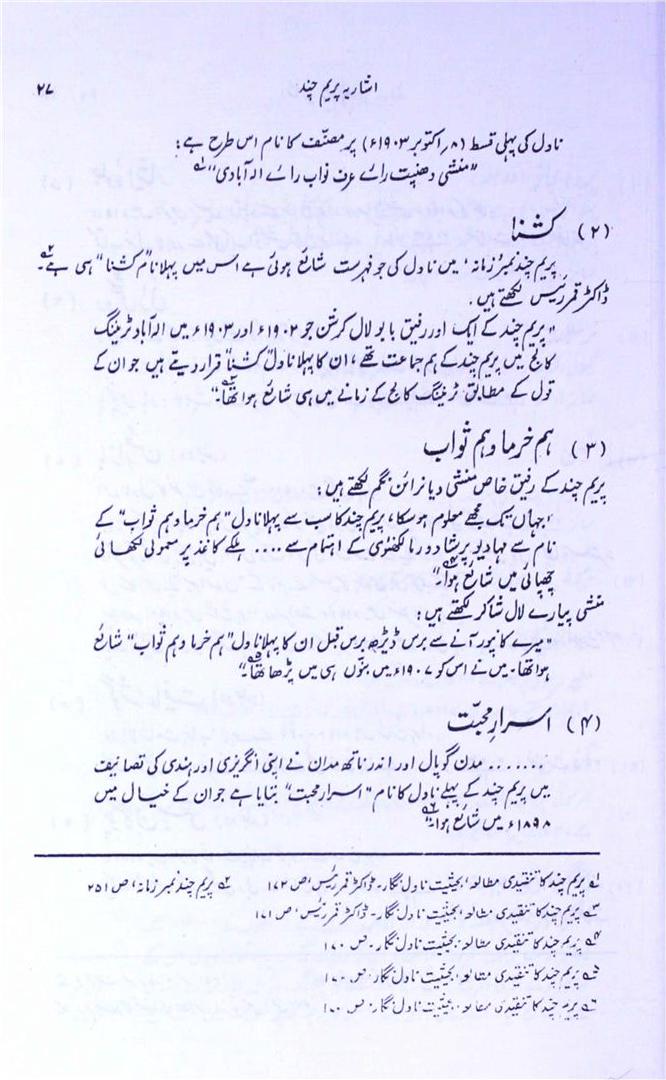 اشاریہ پریم چند
۲۷
ناول کی پہلی قسط (۸؍ اکتوبر ۱۹۰۳ء) پر مصنّف کا نام اس طرح ہے:
"منشی دھنپت رائے عرف نواب رائے الہ آبادی"۱؎
(۲) کشنا
پریم چند نمبر، زمانہ' میں ناول کی جو فہرست شائع ہوئی ہے اس میں پہلا نام "کشنا" ہی ہے۲؎۔
ڈاکٹر قمر رئیس لکھتے ہیں۔
"پریم چند کے ایک اور رفیق بابو لال کرشن جو ۱۹۰۲ء اور ۱۹۰۳ء میں الہ آباد ٹریننگ
کالج میں پریم چند کے ہم جماعت تھے، ان کا پہلا ناول "کشنا" قرار دیتے ہیں جو ان کے
قول کے مطابق ٹریننگ کالج کے زمانے میں ہی شائع ہوا تھا۳؎۔"
(۳) ہم خرما و ہم ثواب
پریم چند کے رفیق خاص منشی دیا نرائن نگم لکھتے ہیں:
"جہاں تک مجھے معلوم ہو سکا، پریم چند کا سب سے پہلا ناول "ہم خرما و ہم ثواب" کے
نام سے مہادیو پرشاد ورما لکھنوی کے اہتمام سے .... ہلکے کاغذ پر معمولی لکھائی
چھپائی میں شائع ہوا۴؎۔"
منشی پیارے لال شاکر لکھتے ہیں:
"میرے کانپور آنے سے برس ڈیڑھ برس قبل ان کا پہلا ناول "ہم خرما و ہم ثواب" شائع
ہوا تھا۔ میں نے اس کو ۱۹۰۷ء میں بنوں ہی میں پڑھا تھا۵؎۔"
(۴) اسرارِ محبّت
"........ مدن گوپال اور اندر ناتھ مدان نے اپنی انگریزی اور ہندی کی تصانیف
میں پریم چند کے پہلے ناول کا نام "اسرار محبت" بتایا ہے جو ان کے خیال میں
۱۸۹۸ء میں شائع ہوا۶؎۔"
۱؎ پریم چند کا تنقیدی مطالعہ بحیثیت ناول نگار۔ ڈاکٹر قمر رئیس، ص ۱۷۲ ۲؎ پریم چند نمبر زمانہ، ص ۲۵۱
۳؎ پریم چند کا تنقیدی مطالعہ بحیثیت ناول نگار۔ ڈاکٹر قمر رئیس، ص ۱۷۱
۴؎ پریم چند کا تنقیدی مطالعہ بحیثیت ناول نگار۔ ص ۱۷۰
۵؎ پریم چند کا تنقیدی مطالعہ بحیثیت ناول نگار، ص ۱۰۰
۶؎ پریم چند کا تنقیدی مطالعہ بحیثیت ناول نگار، ص ۱۰۰